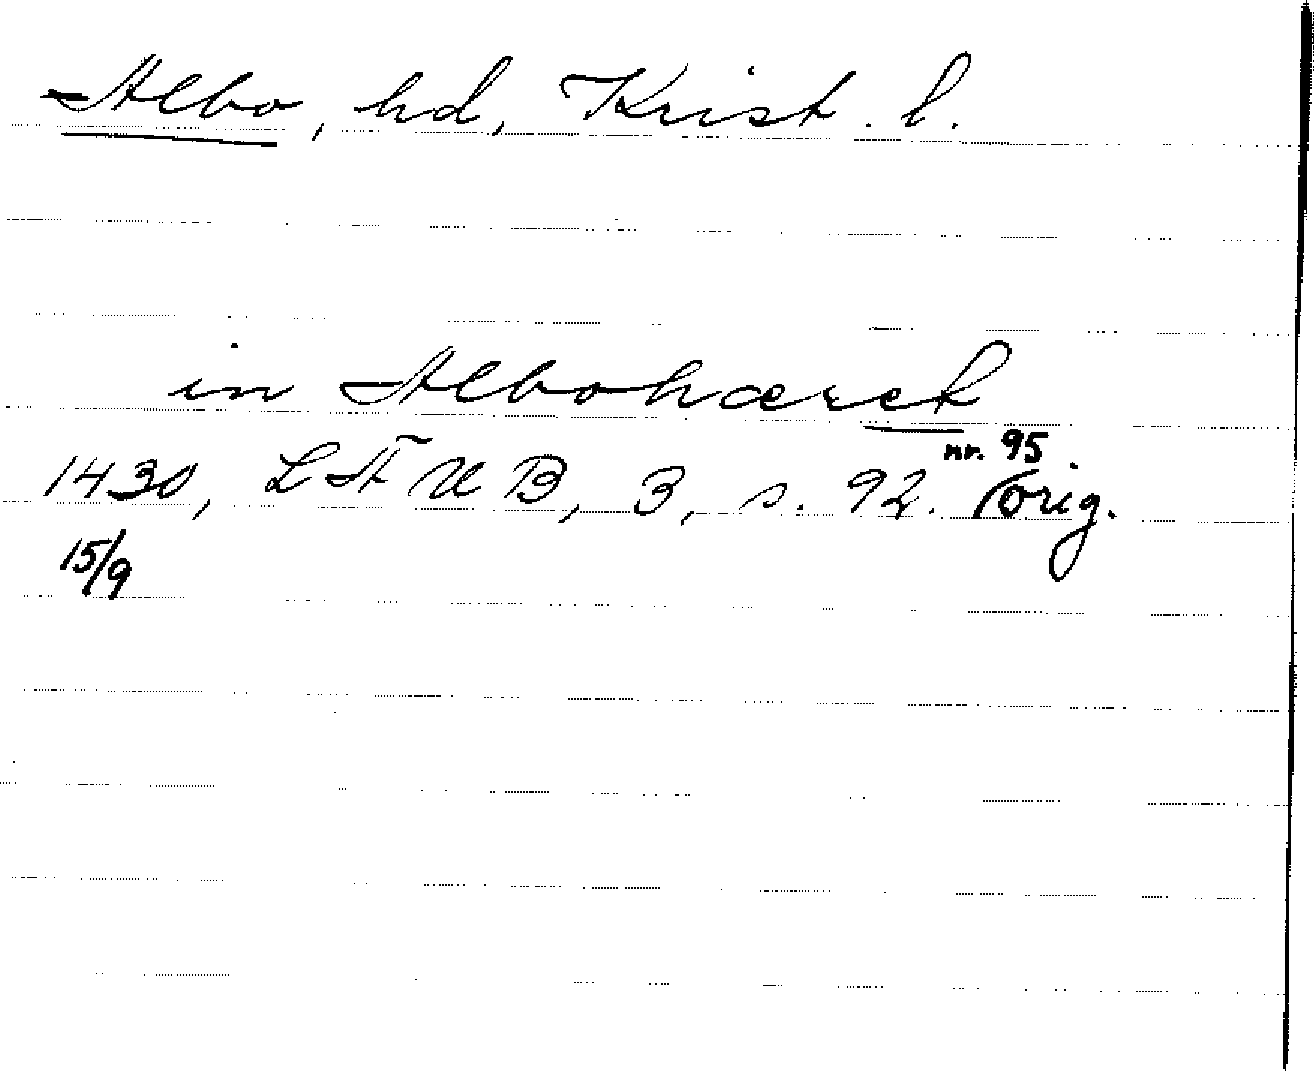 Albo, hd, Krist. l.
in Albohæreth
nr. 95
1430, LÄUB, 3, s. 92. (orig.
15/9